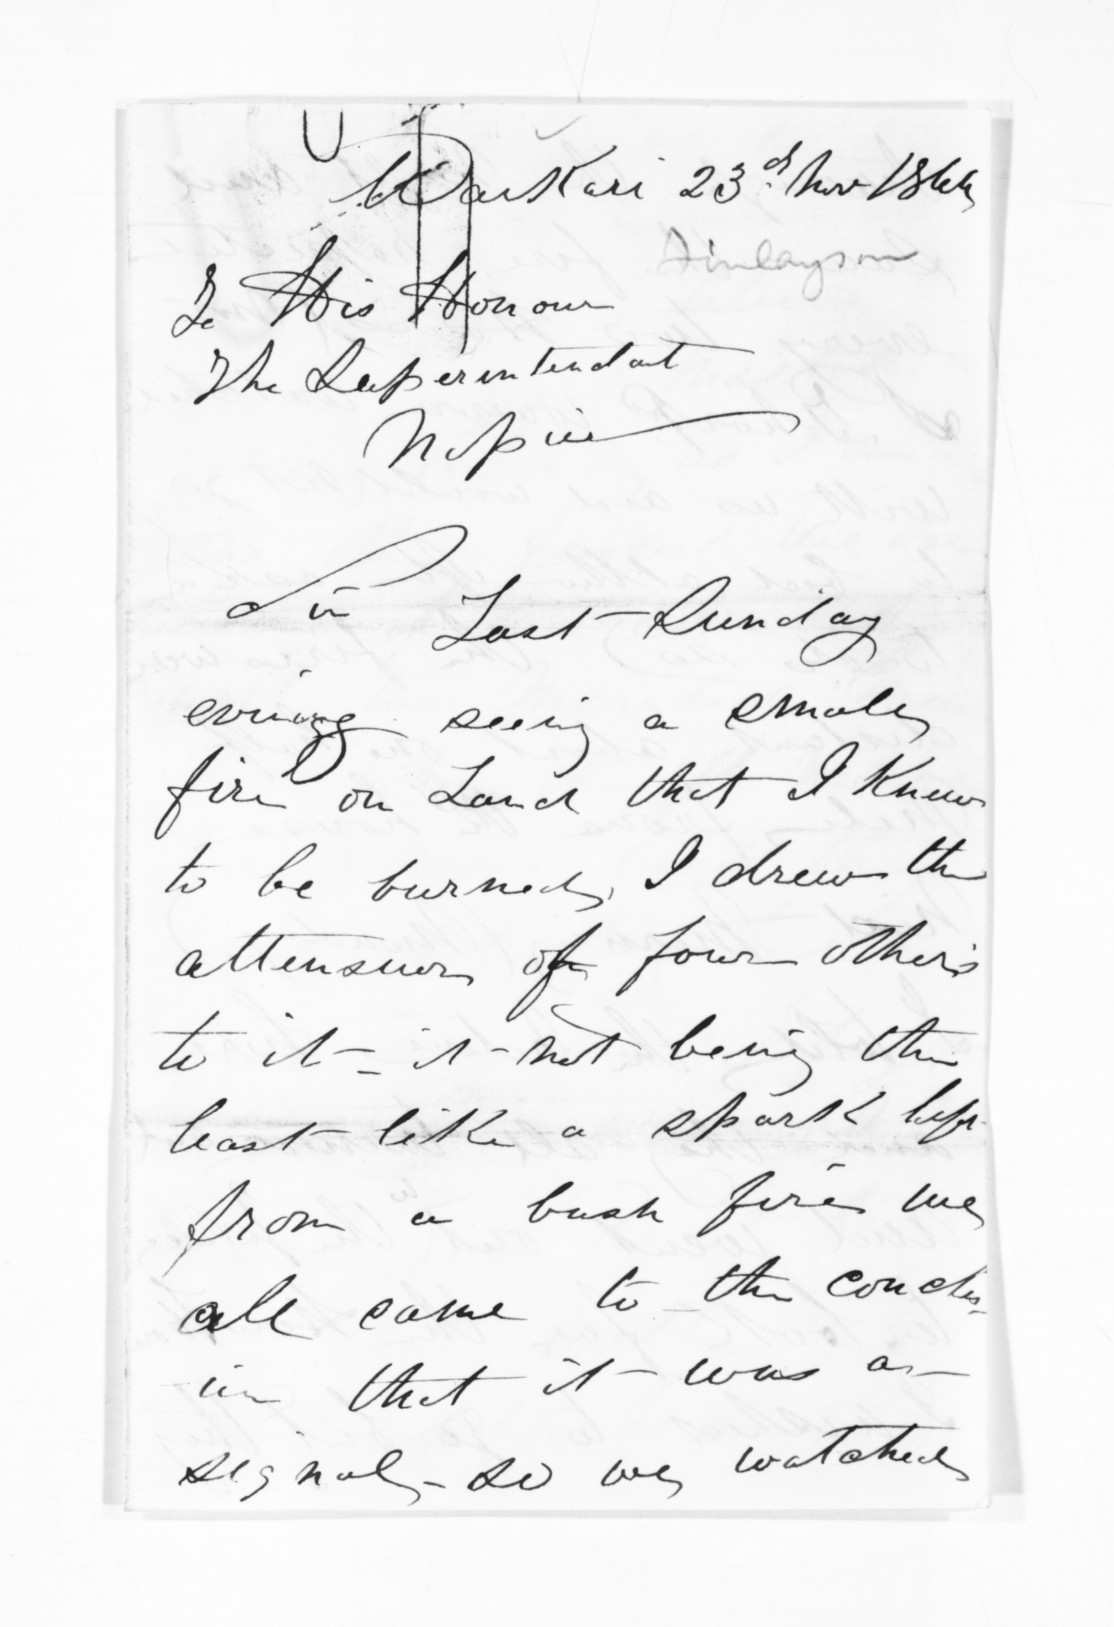 U
Waikari 23d Nov 1866
Finlayson
To His Honour
The Superintendant
Napier
Sir Last Sunday
evening seeing a small
fire on Land that I Knew
to be burned, I drew the
attension of four others
to it - it not being the
least like a spark left
from a bush fire we
all came to the conclus-
ion that it was a
signal - so we watched